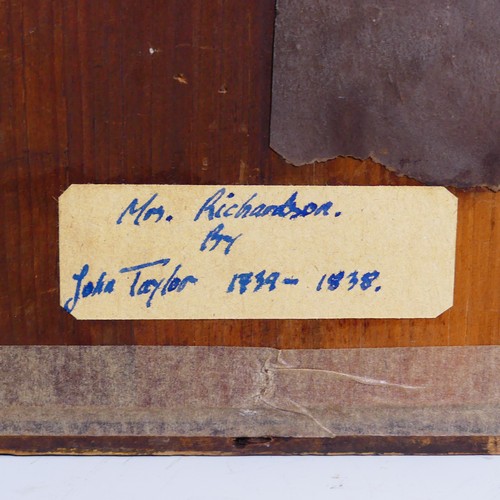 Mrs. Richardson.
By
John Taylor 1839- 1838.